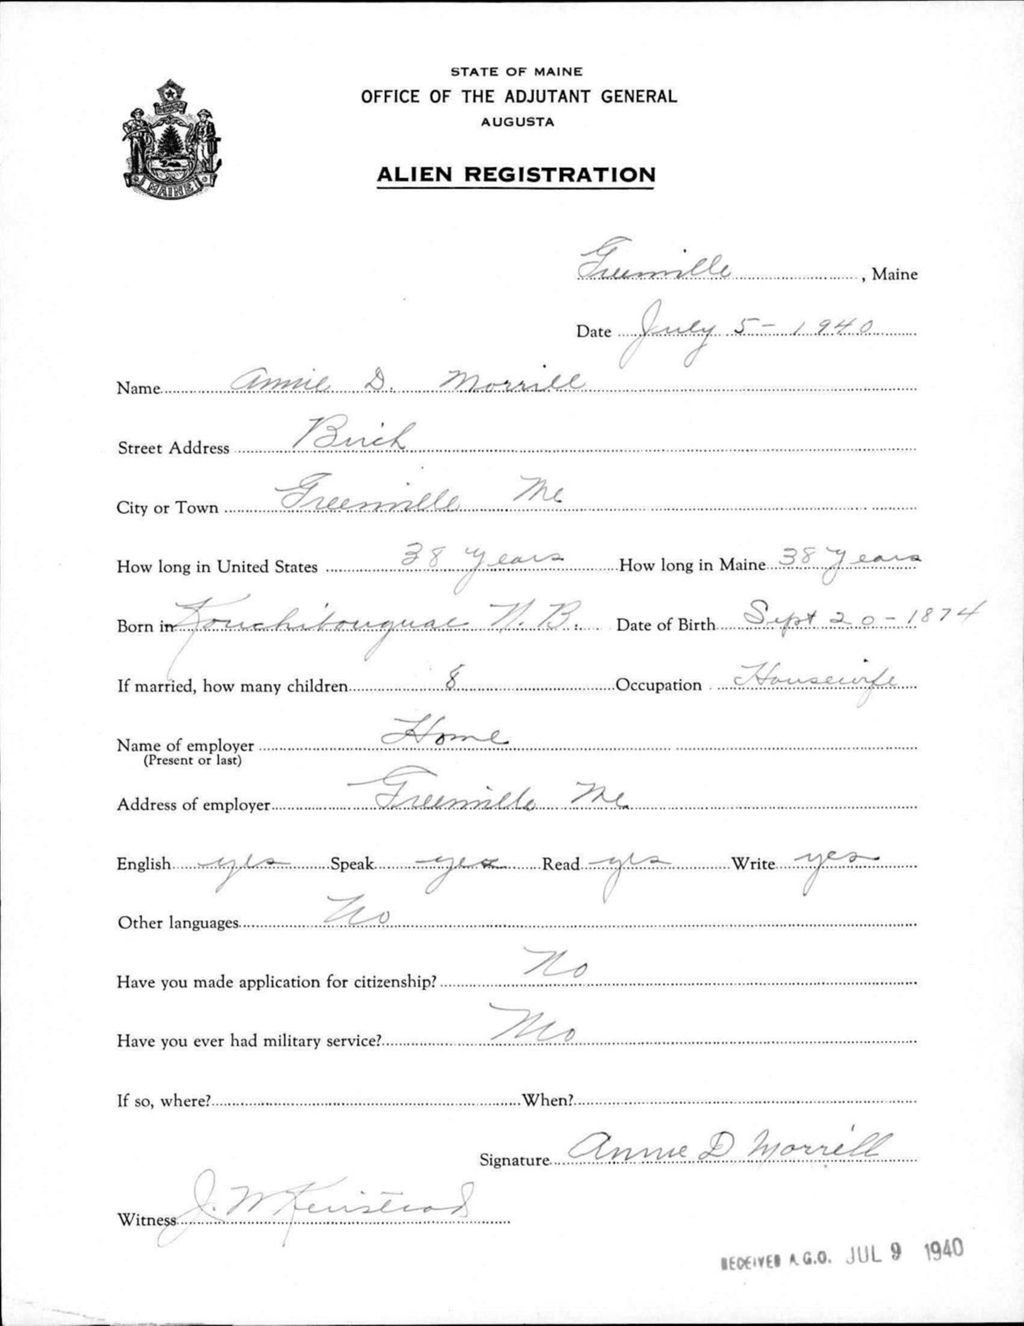 STATE OF MAINE
OFFICE OF THE ADJUTANT GENERAL
AUGUSTA
ALIEN REGISTRATION
MAINE
Greenville, Maine
Date July 5 - 1940
Name Annie D. Morrill
Street Address Birch
City or Town Greenville Me
How long in United States 38 years How long in Maine 38 years
Born in Kouchibouguac N.B. Date of Birth Sept 20 - 1874
If married, how many children 8 Occupation Housewife
Name of employer Home
(Present or last)
Address of employer Greenville Me
English yes Speak yes Read yes Write yes
Other languages No
Have you made application for citizenship? No
Have you ever had military service? No
If so, where? When?
Signature Annie D Morrill
Witness J. W
RECEIVED A.G.O. JUL 9 1940